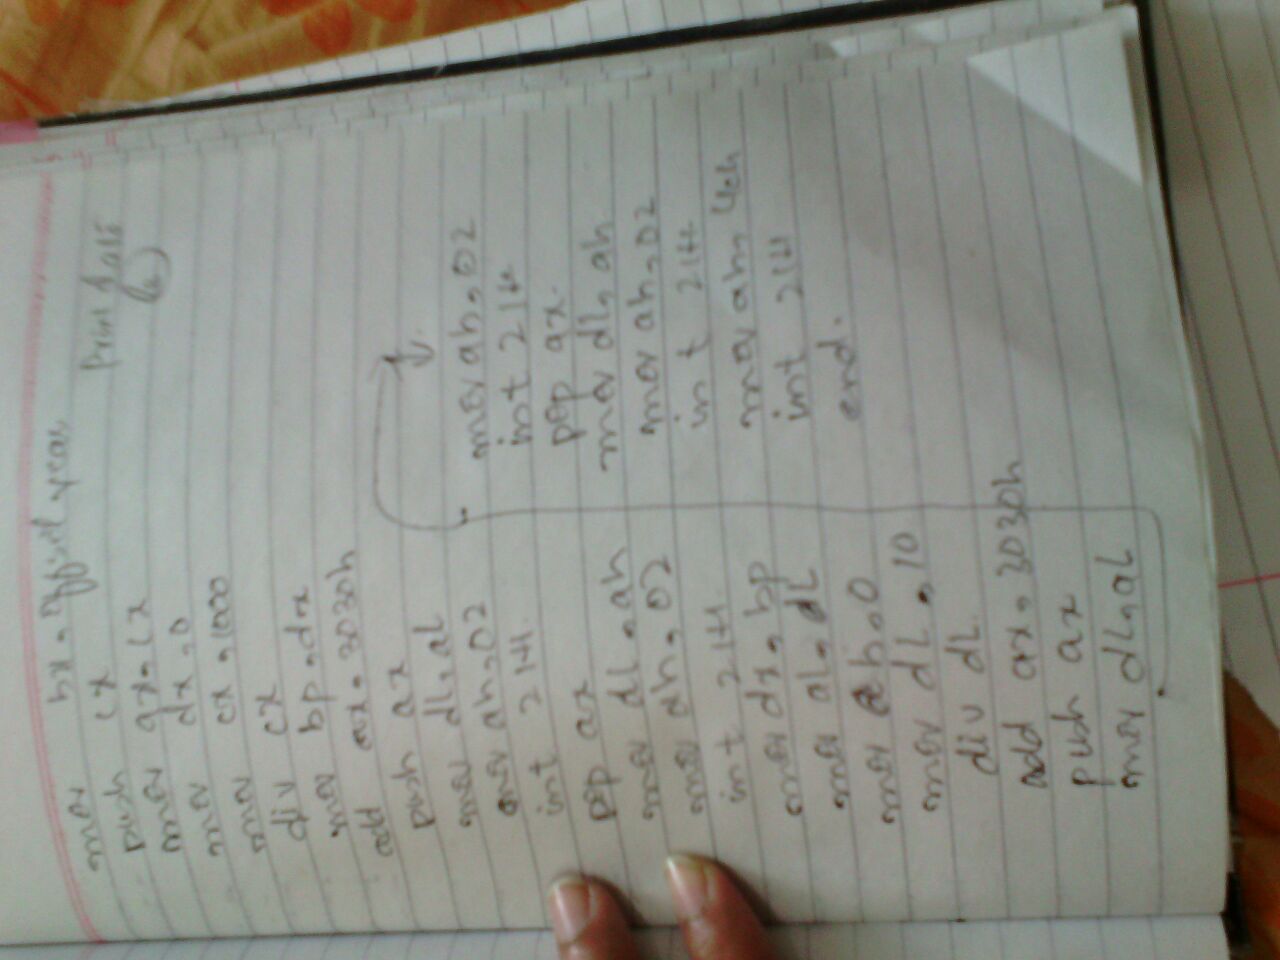 Print date
mov bx, offset year
push cx
mov ax, cx
mov dx, 0
mov cx, 1000
div cx
mov bp, dx
add ax, 3030h
push ax
mov dl, al
mov ah, 02
int 21H
pop ax
mov dl, ah
mov ah, 02
int 21H
mov dx, bp
mov al, dL
mov ah, 0
mov dL, 10
div dL
add ax, 3030h
push ax
mov dL, aL
mov ah, 02
int 21H
pop ax.
mov dl, ah
mov ah, 02
int 21H
mov ah, 4ch
int 21H
end.